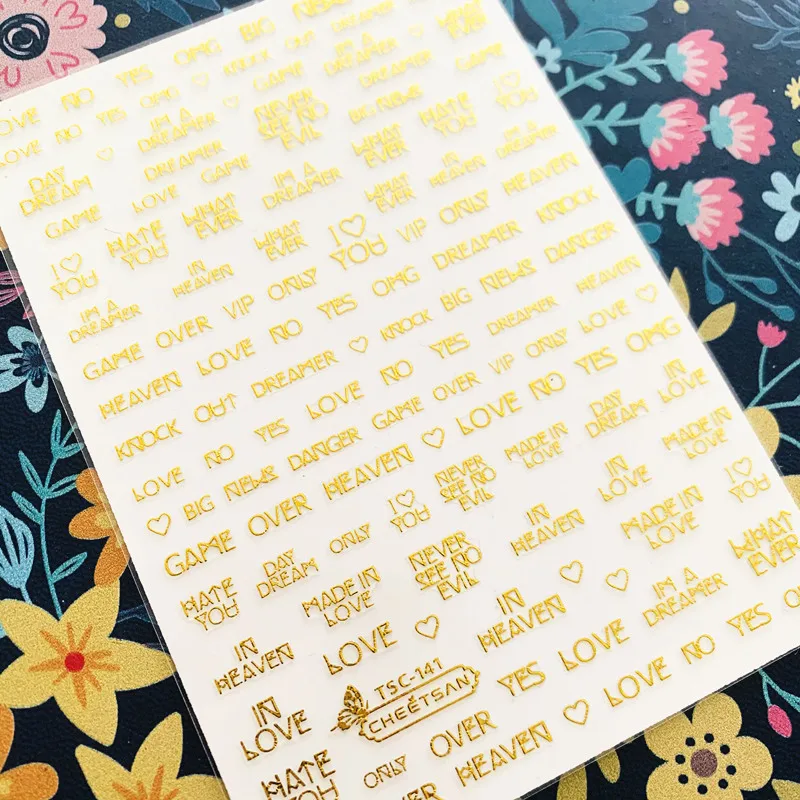 LOVE NO YES OMG BIG
LOVE NO YES OMG ♡ KNOCK OUT DREAMER WHAT EVER
DAY DREAM ♡ I'M A DREAMER GAME I'M A DREAMER GAME
DREAMER NEVER SEE NO EVIL BIG NEWS DREAMER
GAME LOVE GAME WHAT EVER HATE YOU I♡ YOU
I♡ YOU HATE YOU WHAT EVER I'M A DREAMER WHAT EVER IN HEAVEN I'M A DREAMER
I'M A DREAMER IN HEAVEN WHAT EVER I♡ YOU VIP ONLY HEAVEN
GAME OVER VIP ONLY YES OMG DREAMER KNOCK
HEAVEN LOVE NO YES OMG BIG NEWS DANGER
KNOCK OUT DREAMER ♡ KNOCK BIG NEWS DREAMER HEAVEN
LOVE NO YES LOVE NO YES VIP ONLY LOVE ♡
♡ BIG NEWS DANGER GAME OVER LOVE NO YES OMG
GAME OVER HEAVEN ♡ MADE IN LOVE DAY DREAM IN LOVE
HATE YOU DAY DREAM ONLY I♡ YOU NEVER SEE NO EVIL IN LOVE MADE IN LOVE
MADE IN LOVE NEVER SEE NO EVIL IN HEAVEN MADE IN LOVE I♡ YOU
IN HEAVEN LOVE ♡ IN HEAVEN ♡ ♡ I'M A DREAMER WHAT EVER
IN LOVE TSC-141 YES LOVE
CHEETSAN
HATE YOU ONLY OVER HEAVEN ♡ LOVE NO YES